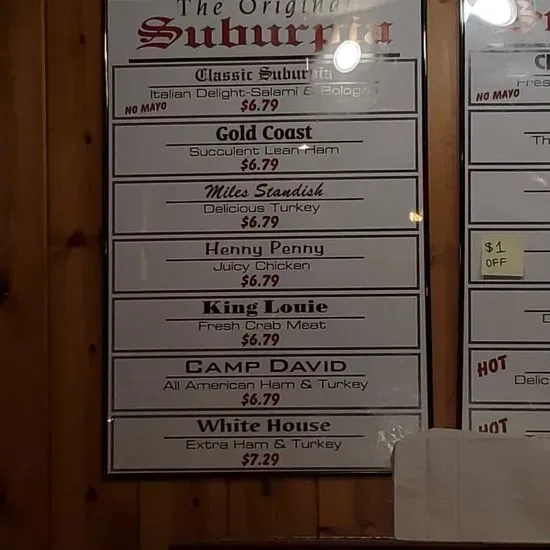 The Original
Suburpia
Classic Suburpia
Italian Delight-Salami & Bologna
NO MAYO
$6.79
Gold Coast
Succulent Lean Ham
$6.79
Miles Standish
Delicious Turkey
$6.79
Henny Penny
Juicy Chicken
$6.79
King Louie
Fresh Crab Meat
$6.79
CAMP DAVID
All American Ham & Turkey
$6.79
White House
Extra Ham & Turkey
$7.29
NO MAYO
Th
$1
OFF
HOT
Delic
HOT